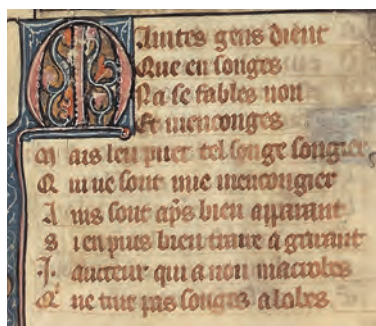 Maintes gens dient
Que en songes
Na se fables non
Et menconges
M ais len puet tel songe songier
Q ui ne sont mie mencongier
A ins sont aps bien apparant
S i en puis bien traire a garant
J. aucteur qui a non macrobes
Q ne tint pas songes a lobes